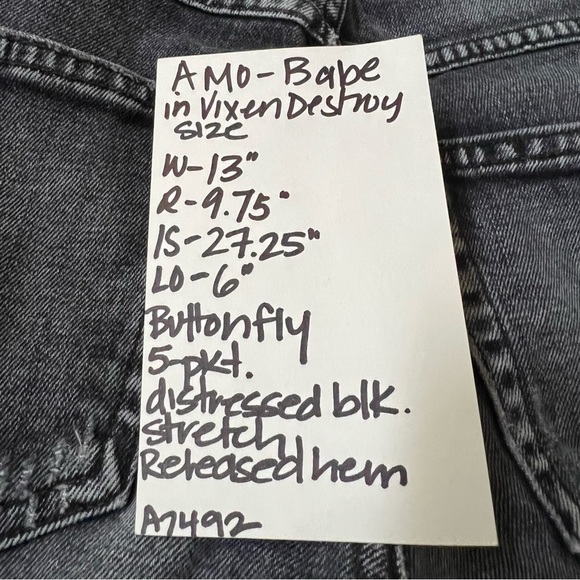 AMO-Babe
in Vixen Destroy
size
W-13"
R-9.75"
IS-27.25"
LO-6"
Buttonfly
5-pkt.
distressed blk.
stretch
Released hem
A7492